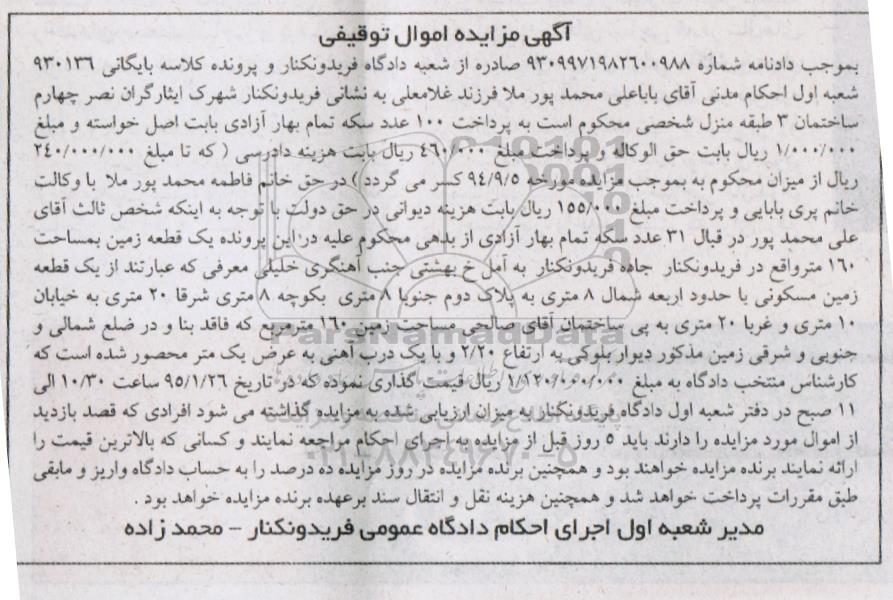 آگهی مزایده اموال توقیفی
بموجب دادنامه شماره ۹۳۰۹۹۷۱۹۸۲۶۰۰۹۸۸ صادره از شعبه دادگاه فریدونکنار و پرونده کلاسه بایگانی ۹۳۰۱۳۶
شعبه اول احکام مدنی آقای باباعلی محمد پور ملا فرزند غلامعلی به نشانی فریدونکنار شهرک ایثارگران نصر چهارم
ساختمان ۳ طبقه منزل شخصی محکوم است به پرداخت ۱۰۰ عدد سکه تمام بهار آزادی بابت اصل خواسته و مبلغ
۱/۰۰۰/۰۰۰ ریال بابت حق الوکاله و پرداخت مبلغ ۴۶۰/۰۰۰ ریال بابت هزینه دادرسی ( که تا مبلغ ۲۴۰/۰۰۰/۰۰۰
ریال از میزان محکوم به بموجب مزایده مورخه ۹۴/۹/۵ کسر می گردد ) در حق خانم فاطمه محمد پور ملا با وکالت
خانم پری بابایی و پرداخت مبلغ ۱۵۵/۰۰۰ ریال بابت هزینه دیوانی در حق دولت با توجه به اینکه شخص ثالث آقای
علی محمد پور در قبال ۳۱ عدد سکه تمام بهار آزادی از بدهی محکوم علیه در این پرونده یک قطعه زمین بمساحت
۱۶۰ مترواقع در فریدونکنار جاده فریدونکنار به آمل خ بهشتی جنب آهنگری خلیلی معرفی که عبارتند از یک قطعه
زمین مسکونی با حدود اربعه شمال ۸ متری به پلاک دوم جنوبا ۸ متری بکوچه ۸ متری شرقا ۲۰ متری به خیابان
۱۰ متری و غربا ۲۰ متری به پی ساختمان آقای صالحی مساحت زمین ۱۶۰ مترمربع که فاقد بنا و در ضلع شمالی و
جنوبی و شرقی زمین مذکور دیوار بلوکی به ارتفاع ۲/۲۰ و با یک درب آهنی به عرض یک متر محصور شده است که
کارشناس منتخب دادگاه به مبلغ ۱/۱۲۰/۰۰۰/۰۰۰ ریال قیمت گذاری نموده که در تاریخ ۹۵/۱/۲۶ ساعت ۱۰/۳۰ الی
۱۱ صبح در دفتر شعبه اول دادگاه فریدونکنار به میزان ارزیابی شده به مزایده گذاشته می شود افرادی که قصد بازدید
از اموال مورد مزایده را دارند باید ۵ روز قبل از مزایده به اجرای احکام مراجعه نمایند و کسانی که بالاترین قیمت را
ارائه نمایند برنده مزایده خواهند بود و همچنین برنده مزایده در روز مزایده ده درصد را به حساب دادگاه واریز و مابقی
طبق مقررات پرداخت خواهد شد و همچنین هزینه نقل و انتقال سند برعهده برنده مزایده خواهد بود .
مدیر شعبه اول اجرای احکام دادگاه عمومی فریدونکنار - محمد زاده
ParsNamadData
۰۲۱-۸۸۳۴۹۶۷۰-۵